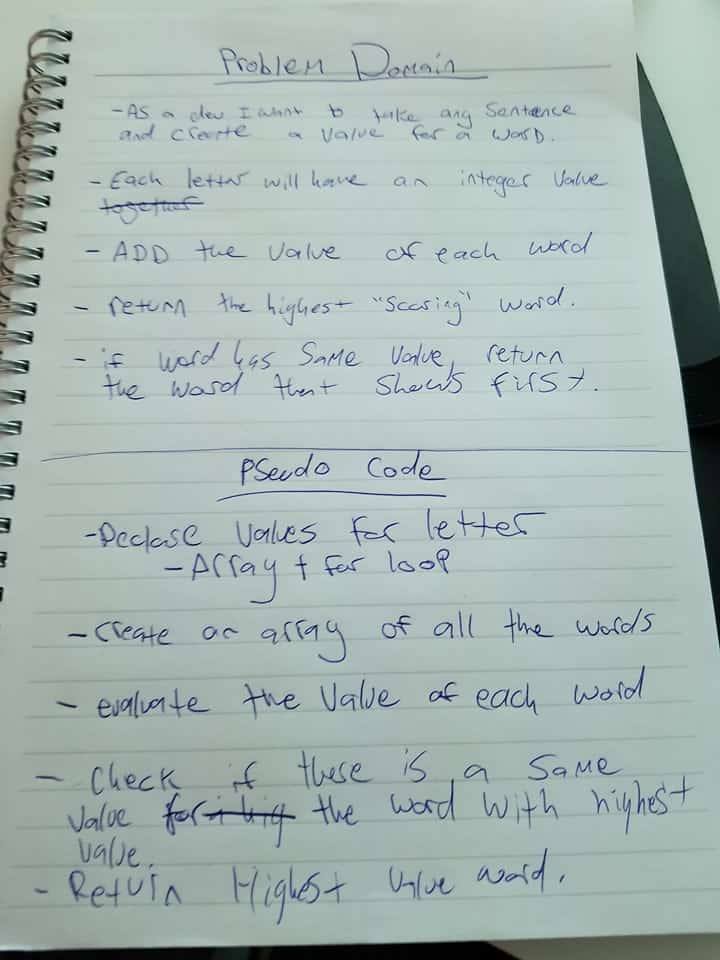 Problem Domain
- As a dev I want to take any sentence
and create a value for a word.
- Each letter will have an integer value
together
- ADD the value of each word
- return the highest "scoring" word.
- if word has same value, return
the word that shows first.
Pseudo Code
- Declare values for letter
- Array + for loop
- create an array of all the words
- evaluate the value of each word
- Check if there is a same
value for the word with highest
value.
- Return Highest value word.